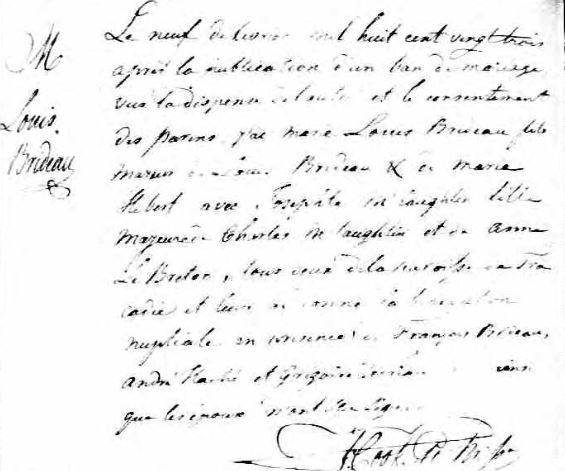 M
Louis
Brideau
Le neuf de fevrier mil huit cent vingt trois
après la publication d'un ban de mariage
vus la dispence et le consentement
des parens j'ai marié Louis Brideau fils
de Louis Brideau & de marie
Hebert avec fille
majeure de Charles et de anne
Le Breton, tous deux de la paroisse de Tra
cadie et leur ai donné la
nuptiale en presence de François Brideau,
andré Haché et Grégoire
que les époux n'ont
Cook